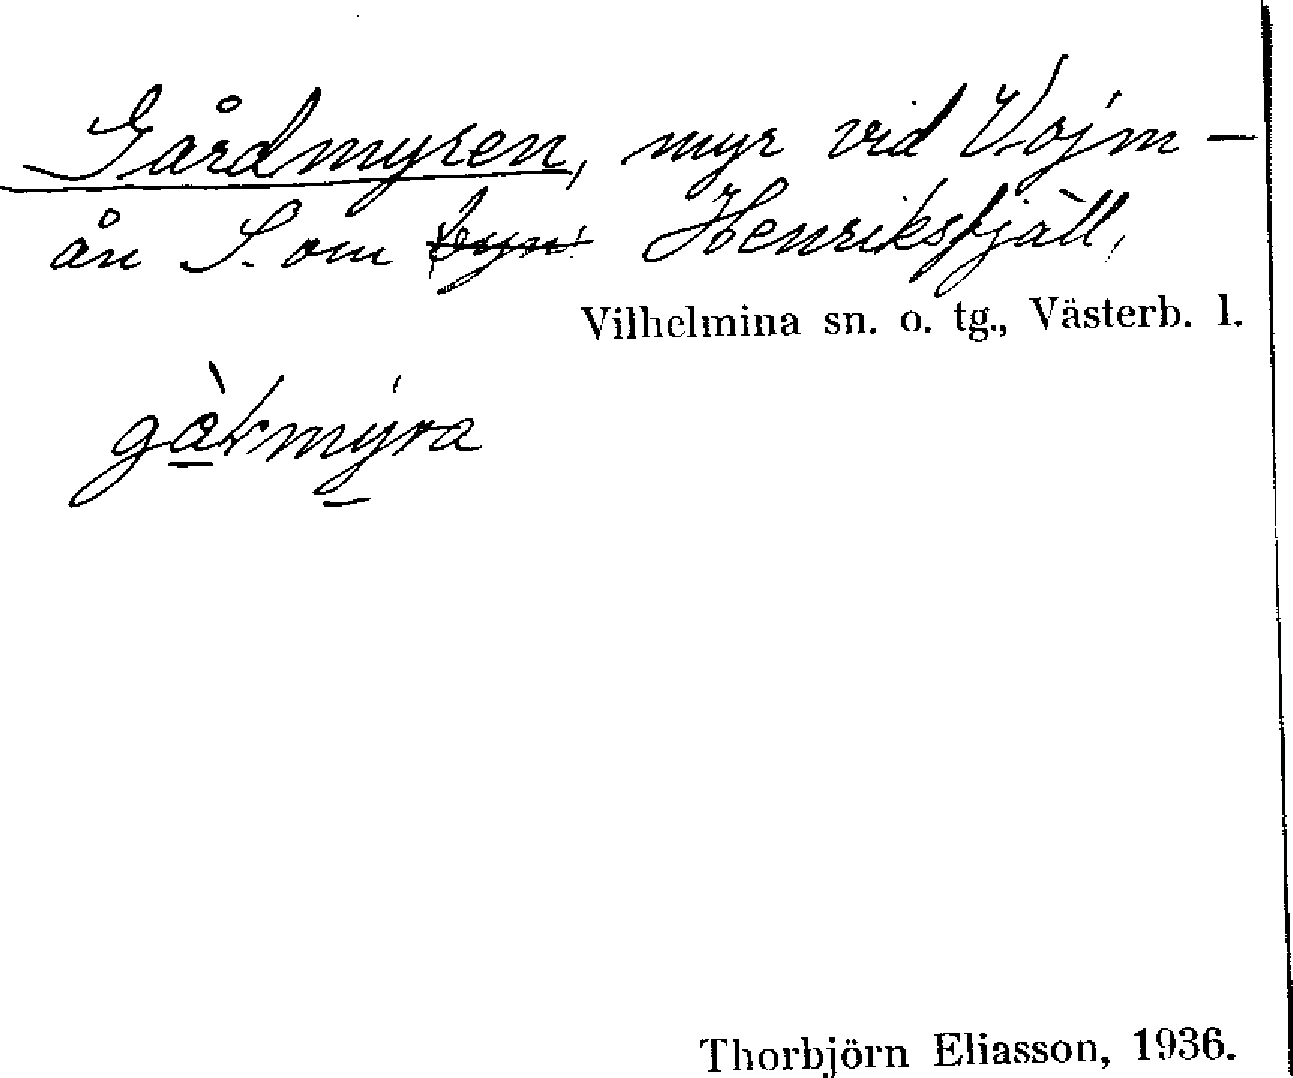 Gårdmyren, myr vid Vojm-
ån S. om byn Henriksfjäll,
Vilhelmina sn. o. tg., Västerb. l.
Thorbjörn Eliasson, 1936.